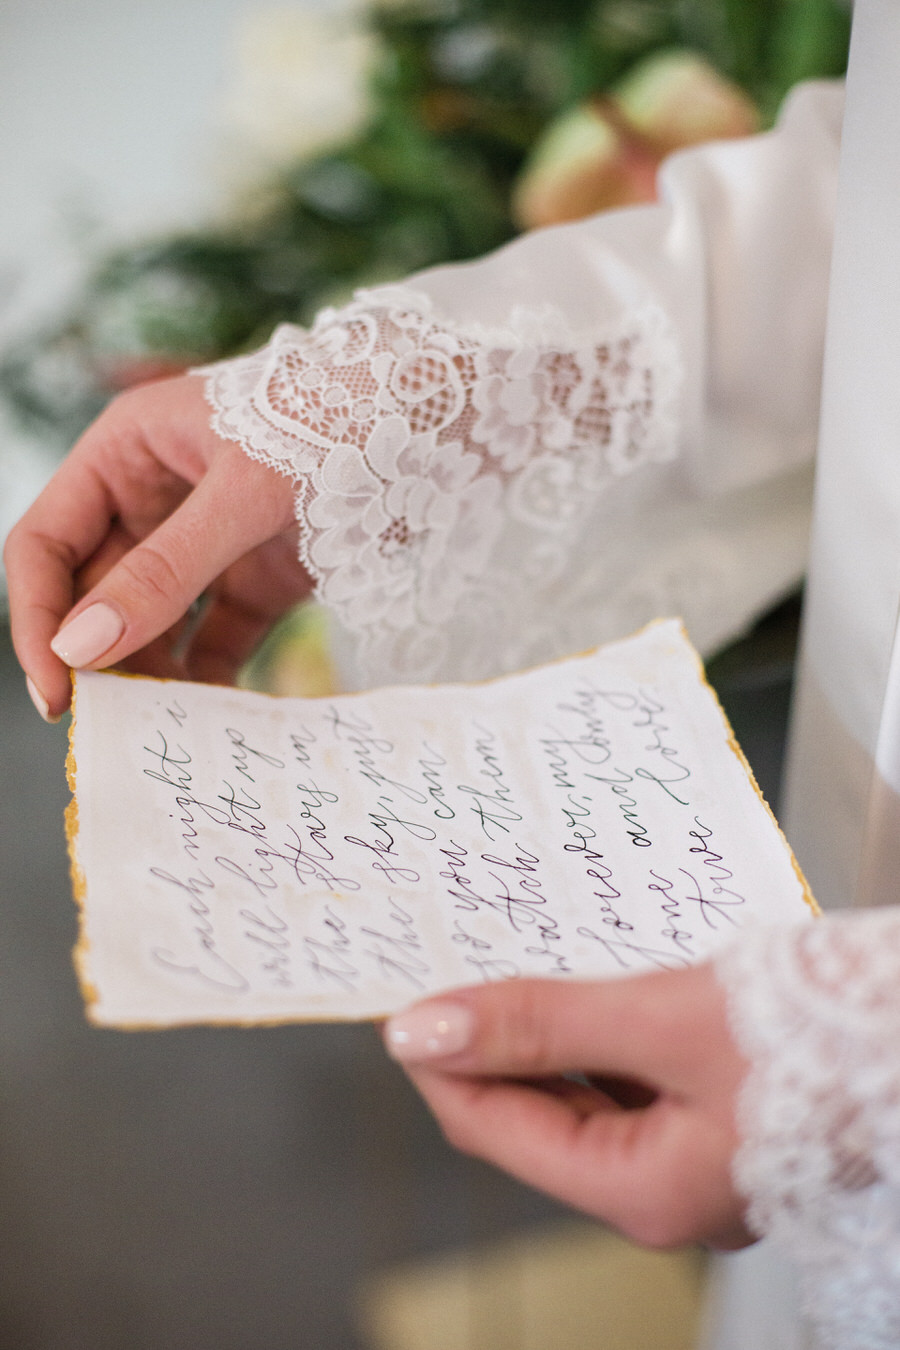 Each night i
will light up
the stars in
the sky, just
so you can
watch them
forever, my
one and only
true love.